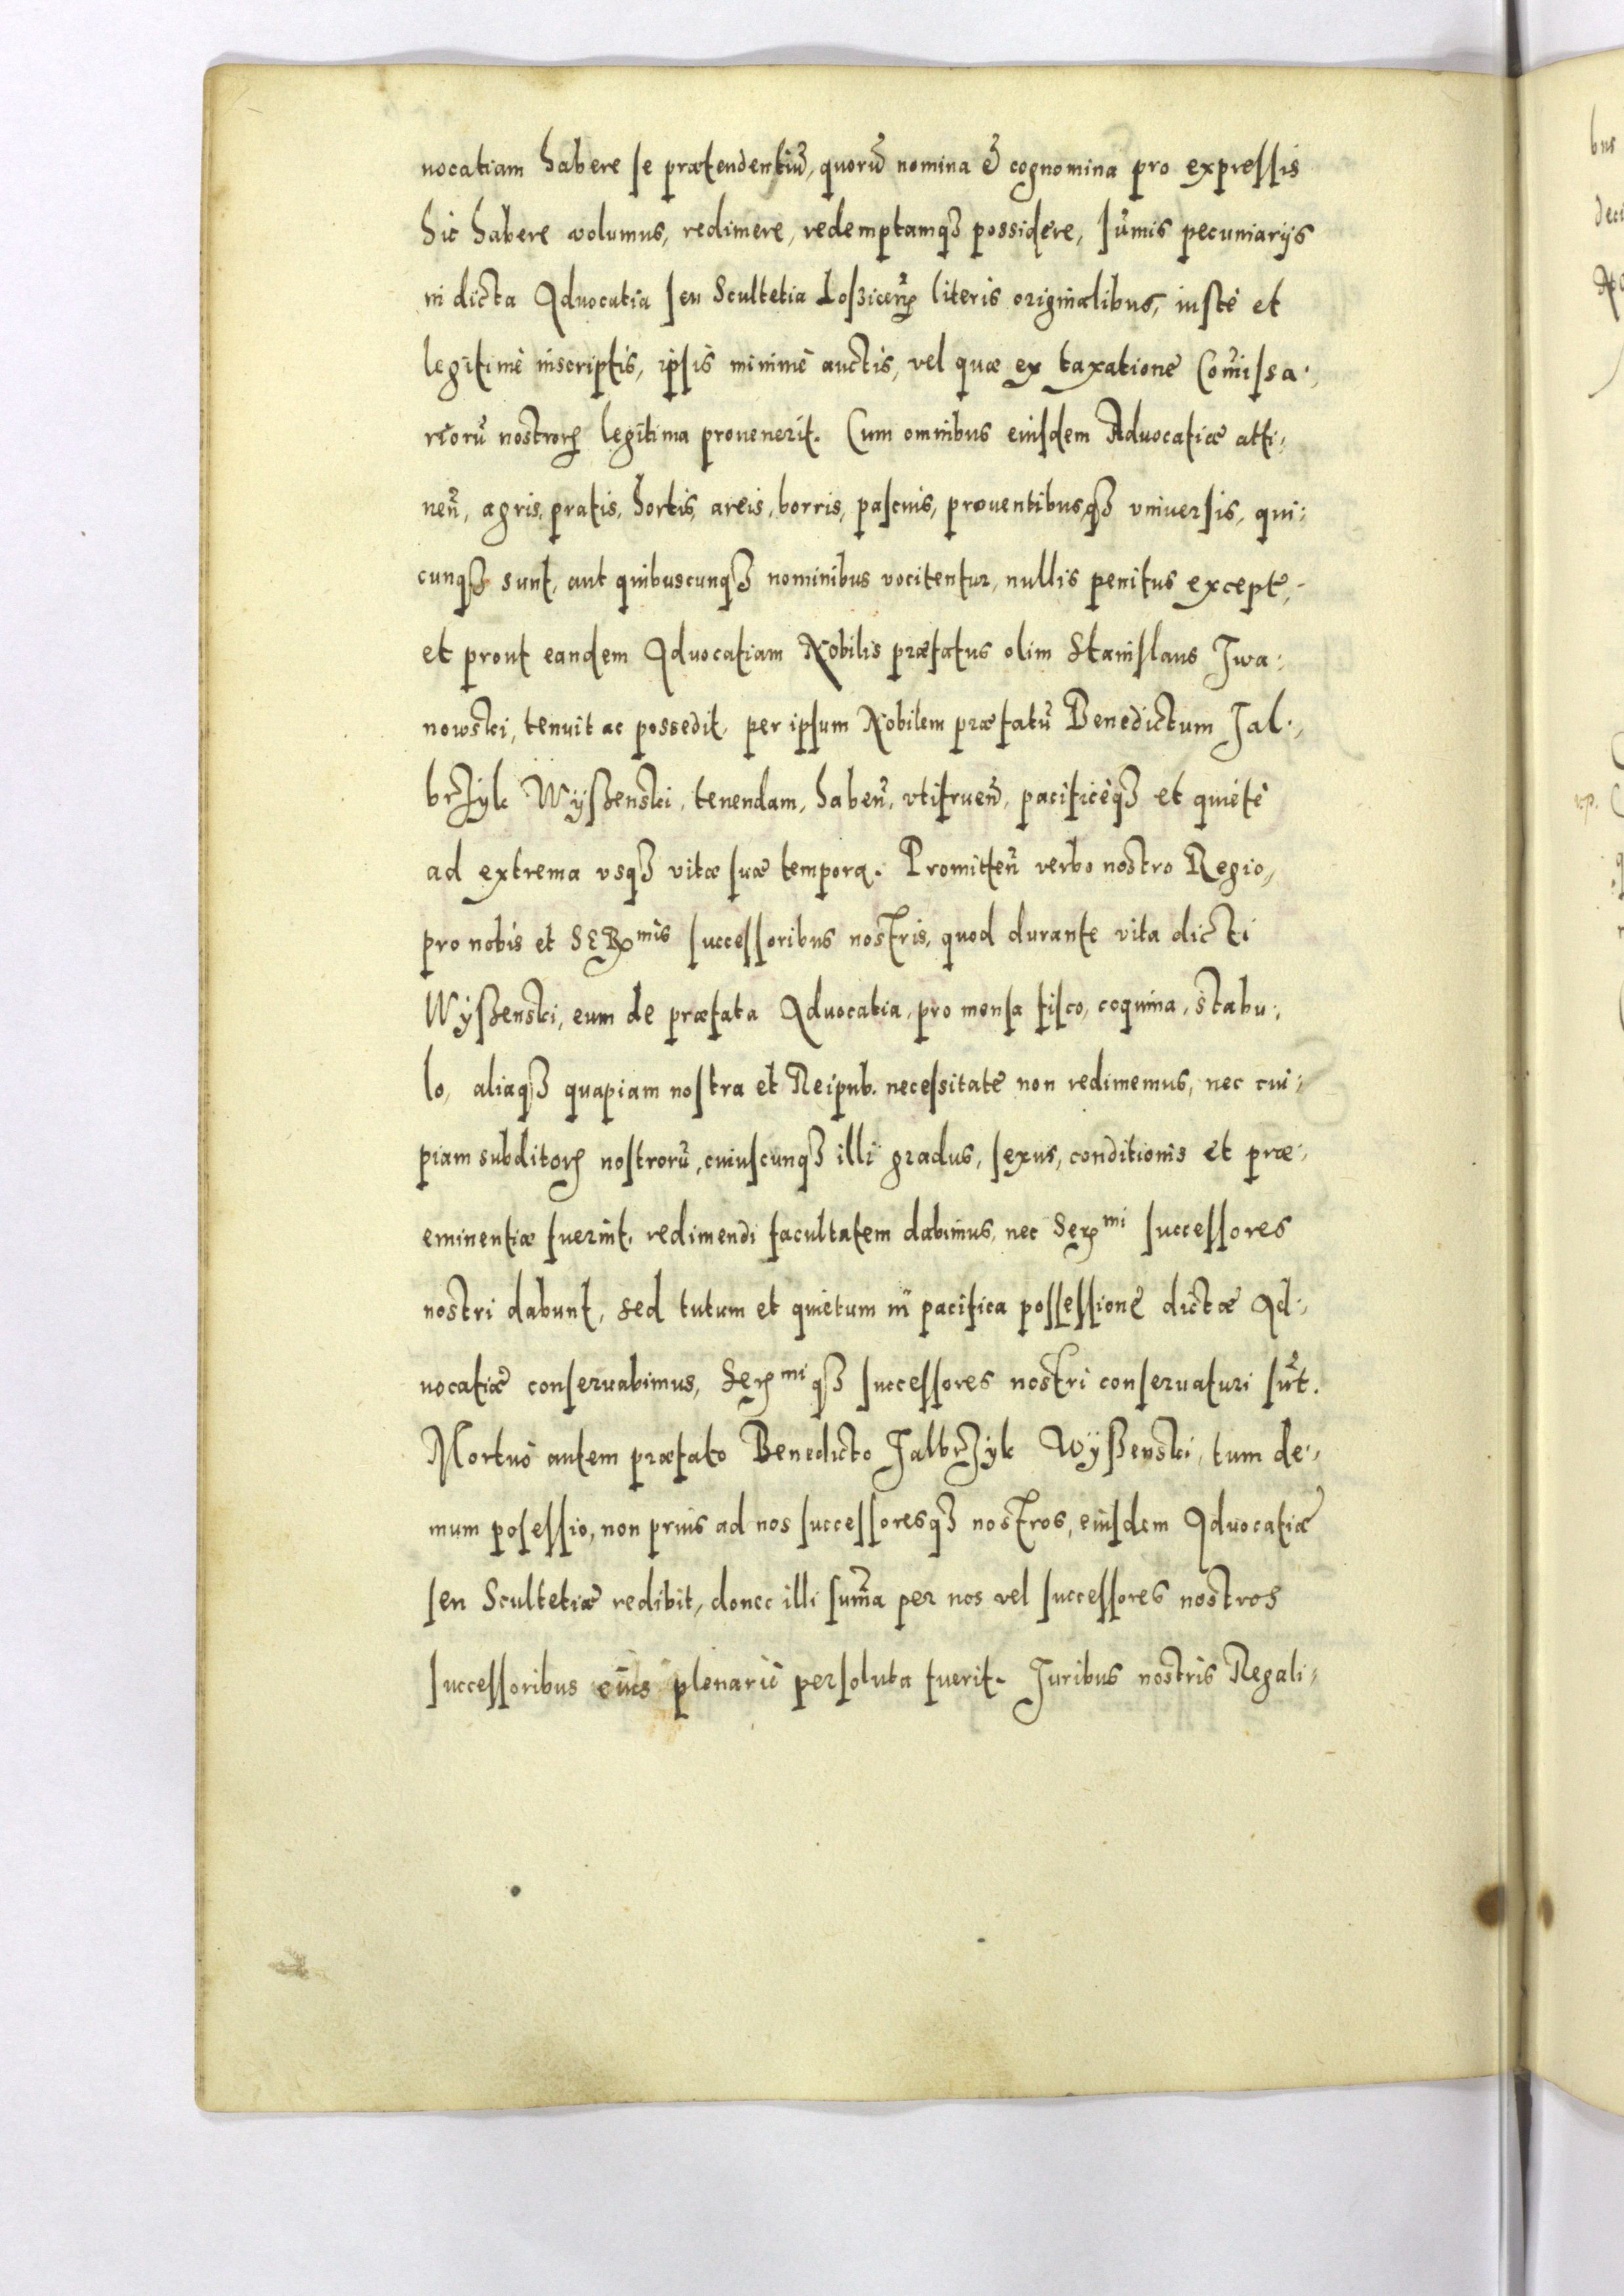 uocatiam habere se prætendentiũ, quorũ nomina & cognomina pro expressis
hic habere volumus, redimere, redemptamq3 possidere, sũmis pecuniarijs
in dicta Aduocatia seu Scultetia Losziceñ literis originalibus, iustè et
legitimè inscriptis, ipsis minimè auctis, vel quæ ex taxatione Com̃issa:,
riorũ nostroꝝ legitima prouenerit. Cum omnibus eiusdem Aduocatiæ atti:,
neñ, agris, pratis, hortis, areis, borris, pascuis, prouentibusq3 vniuersis, qui:,
cunq3 sunt, aut quibuscunq3 nominibus vocitentur, nullis penitus except,
et prout eandem Aduocatiam Nobilis præfatus olim Stanislaus Iwa:
nowski, tenuit ac possedit, per ipsum Nobilem præfatũ Benedictum Jal:,
brzyk Wyszenski, tenendam, habeñ, vtifrueñ, pacificèq3 et quietè
ad extrema vsq3 vitæ suæ tempora. Promitteñ verbo nostro Regio,,
pro nobis et SERmis successoribus nostris, quod durante vita dicti
Wyszenski, eum de præfata Aduocatia, pro mensa fisco, coquina, stabu:,
lo, aliaq3 quapiam nostra et Reipub. necessitate non redimemus, nec cui:,
piam subditoꝝ nostrorũ, cuiuscunq3 illi gradus, sexus, conditionis et præ:,
eminentiæ fuerint, redimendi facultatem dabimus, nec Serꝫmi successores
nostri dabunt, sed tutum et quietum in pacifica possessione dictæ Ad:,
uocatiæ conseruabimus, Serꝫmiq3 successores nostri conseruaturi sũt.
Mortuo autem præfato Benedicto Jalbrzyk Wyszenski, tum de:,
mum posessio, non prius ad nos successoresq3 nostros, eiusdem Aduocatiæ
seu Scultetiæ redibit, donec illi sum̃a per nos vel successores nostros
successoribus eius plenariè persoluta fuerit. Juribus nostris Regali:,